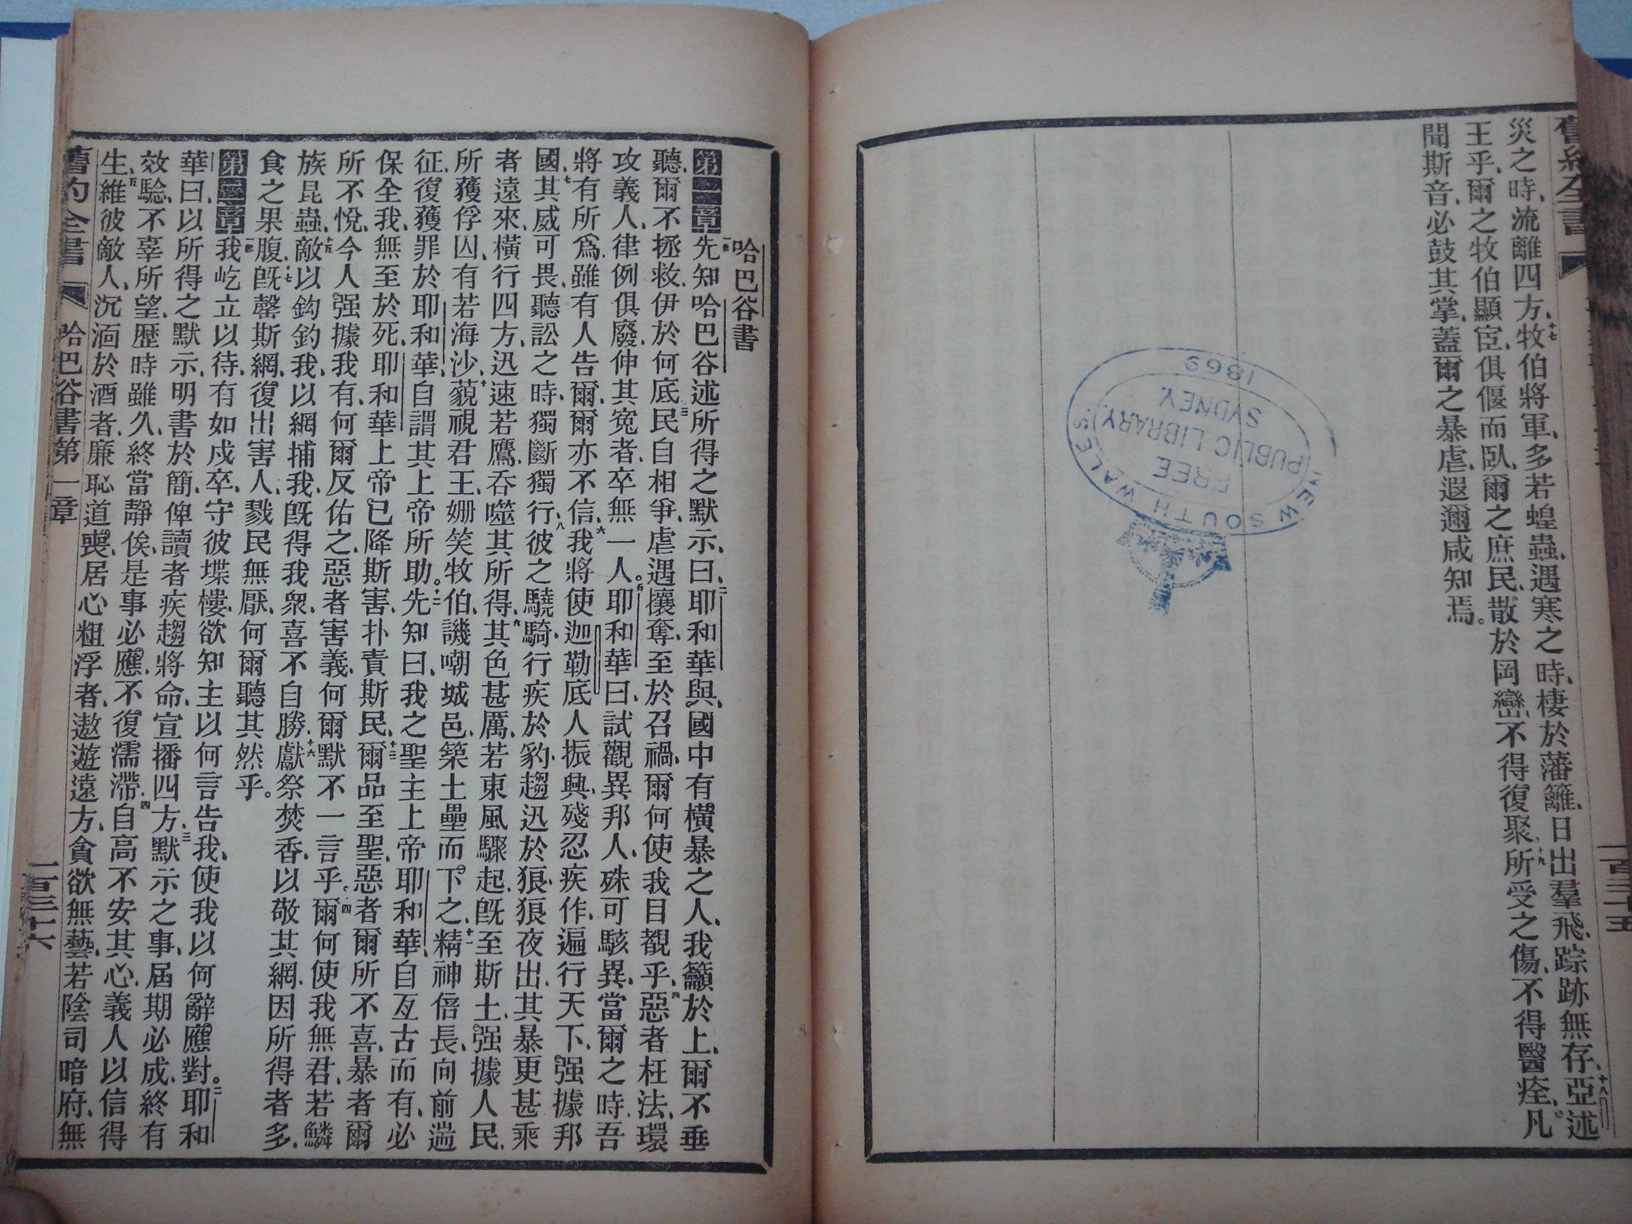 舊約全書
災之時、流離四方、牧伯將軍、多若蝗蟲、遇寒之時、棲於藩籬、日出羣飛、踪跡無存、亞述
王乎、爾之牧伯顯宦、俱偃而臥、爾之庶民、散於岡巒、不得復聚、所受之傷、不得醫痊、凡
聞斯音、必鼓其掌、蓋爾之暴虐、遐邇咸知焉。
一百三十五
NEW SOUTH WALES
FREE
PUBLIC LIBRARY
SYDNEY
1869
哈巴谷書
第一章先知哈巴谷述所得之默示、曰、耶和華與、國中有橫暴之人、我籲於上、爾不垂
聽、爾不拯救、伊於何底、民自相爭、虐遇攘奪、至於召禍、爾何使我目覩乎、惡者枉法、環
攻義人、律例俱廢、伸其寃者、卒無一人。耶和華曰、試觀異邦人、殊可駭異、當爾之時、吾
將有所爲、雖有人告爾、爾亦不信、我將使迦勒底人振興、殘忍疾作、遍行天下、强據邦
國、其威可畏、聽訟之時、獨斷獨行、彼之驍騎、行疾於豹、趨迅於狼、狼夜出、其暴更甚、乘
者遠來、橫行四方、迅速若鷹、吞噬其所得、其色甚厲、若東風驟起、旣至斯土、强據人民、
所獲俘囚、有若海沙、藐視君王、姍笑牧伯、譏嘲城邑、築土壘而下之、精神倍長、向前遄
征、復獲罪於耶和華、自謂其上帝所助。先知曰、我之聖主上帝耶和華、自亙古而有、必
保全我、無至於死、耶和華上帝、已降斯害、扑責斯民、爾品至聖、惡者爾所不喜、暴者爾
所不悅、今人强據我有、何爾反佑之、惡者害義、何爾默不一言乎、爾何使我無君、若鱗
族昆蟲、敵以鈎釣我、以網捕我、旣得我衆、喜不自勝、獻祭焚香、以敬其網、因所得者多、
食之果腹、旣罄斯網、復出害人、戮民無厭、何爾聽其然乎。
第二章我屹立以待、有如戍卒、守彼堞樓、欲知主以何言告我、使我以何辭應對。耶和
華曰、以所得之默示、明書於簡、俾讀者疾趨將命、宣播四方、默示之事、屆期必成、終有
效驗、不辜所望、歷時雖久、終當靜俟、是事必應、不復濡滯、自高不安其心、義人以信得
生、維彼敵人、沉湎於酒者、廉恥道喪、居心粗浮者、遨遊遠方、貪欲無藝、若陰司暗府、無
舊約全書
哈巴谷書第一章
一百三十六